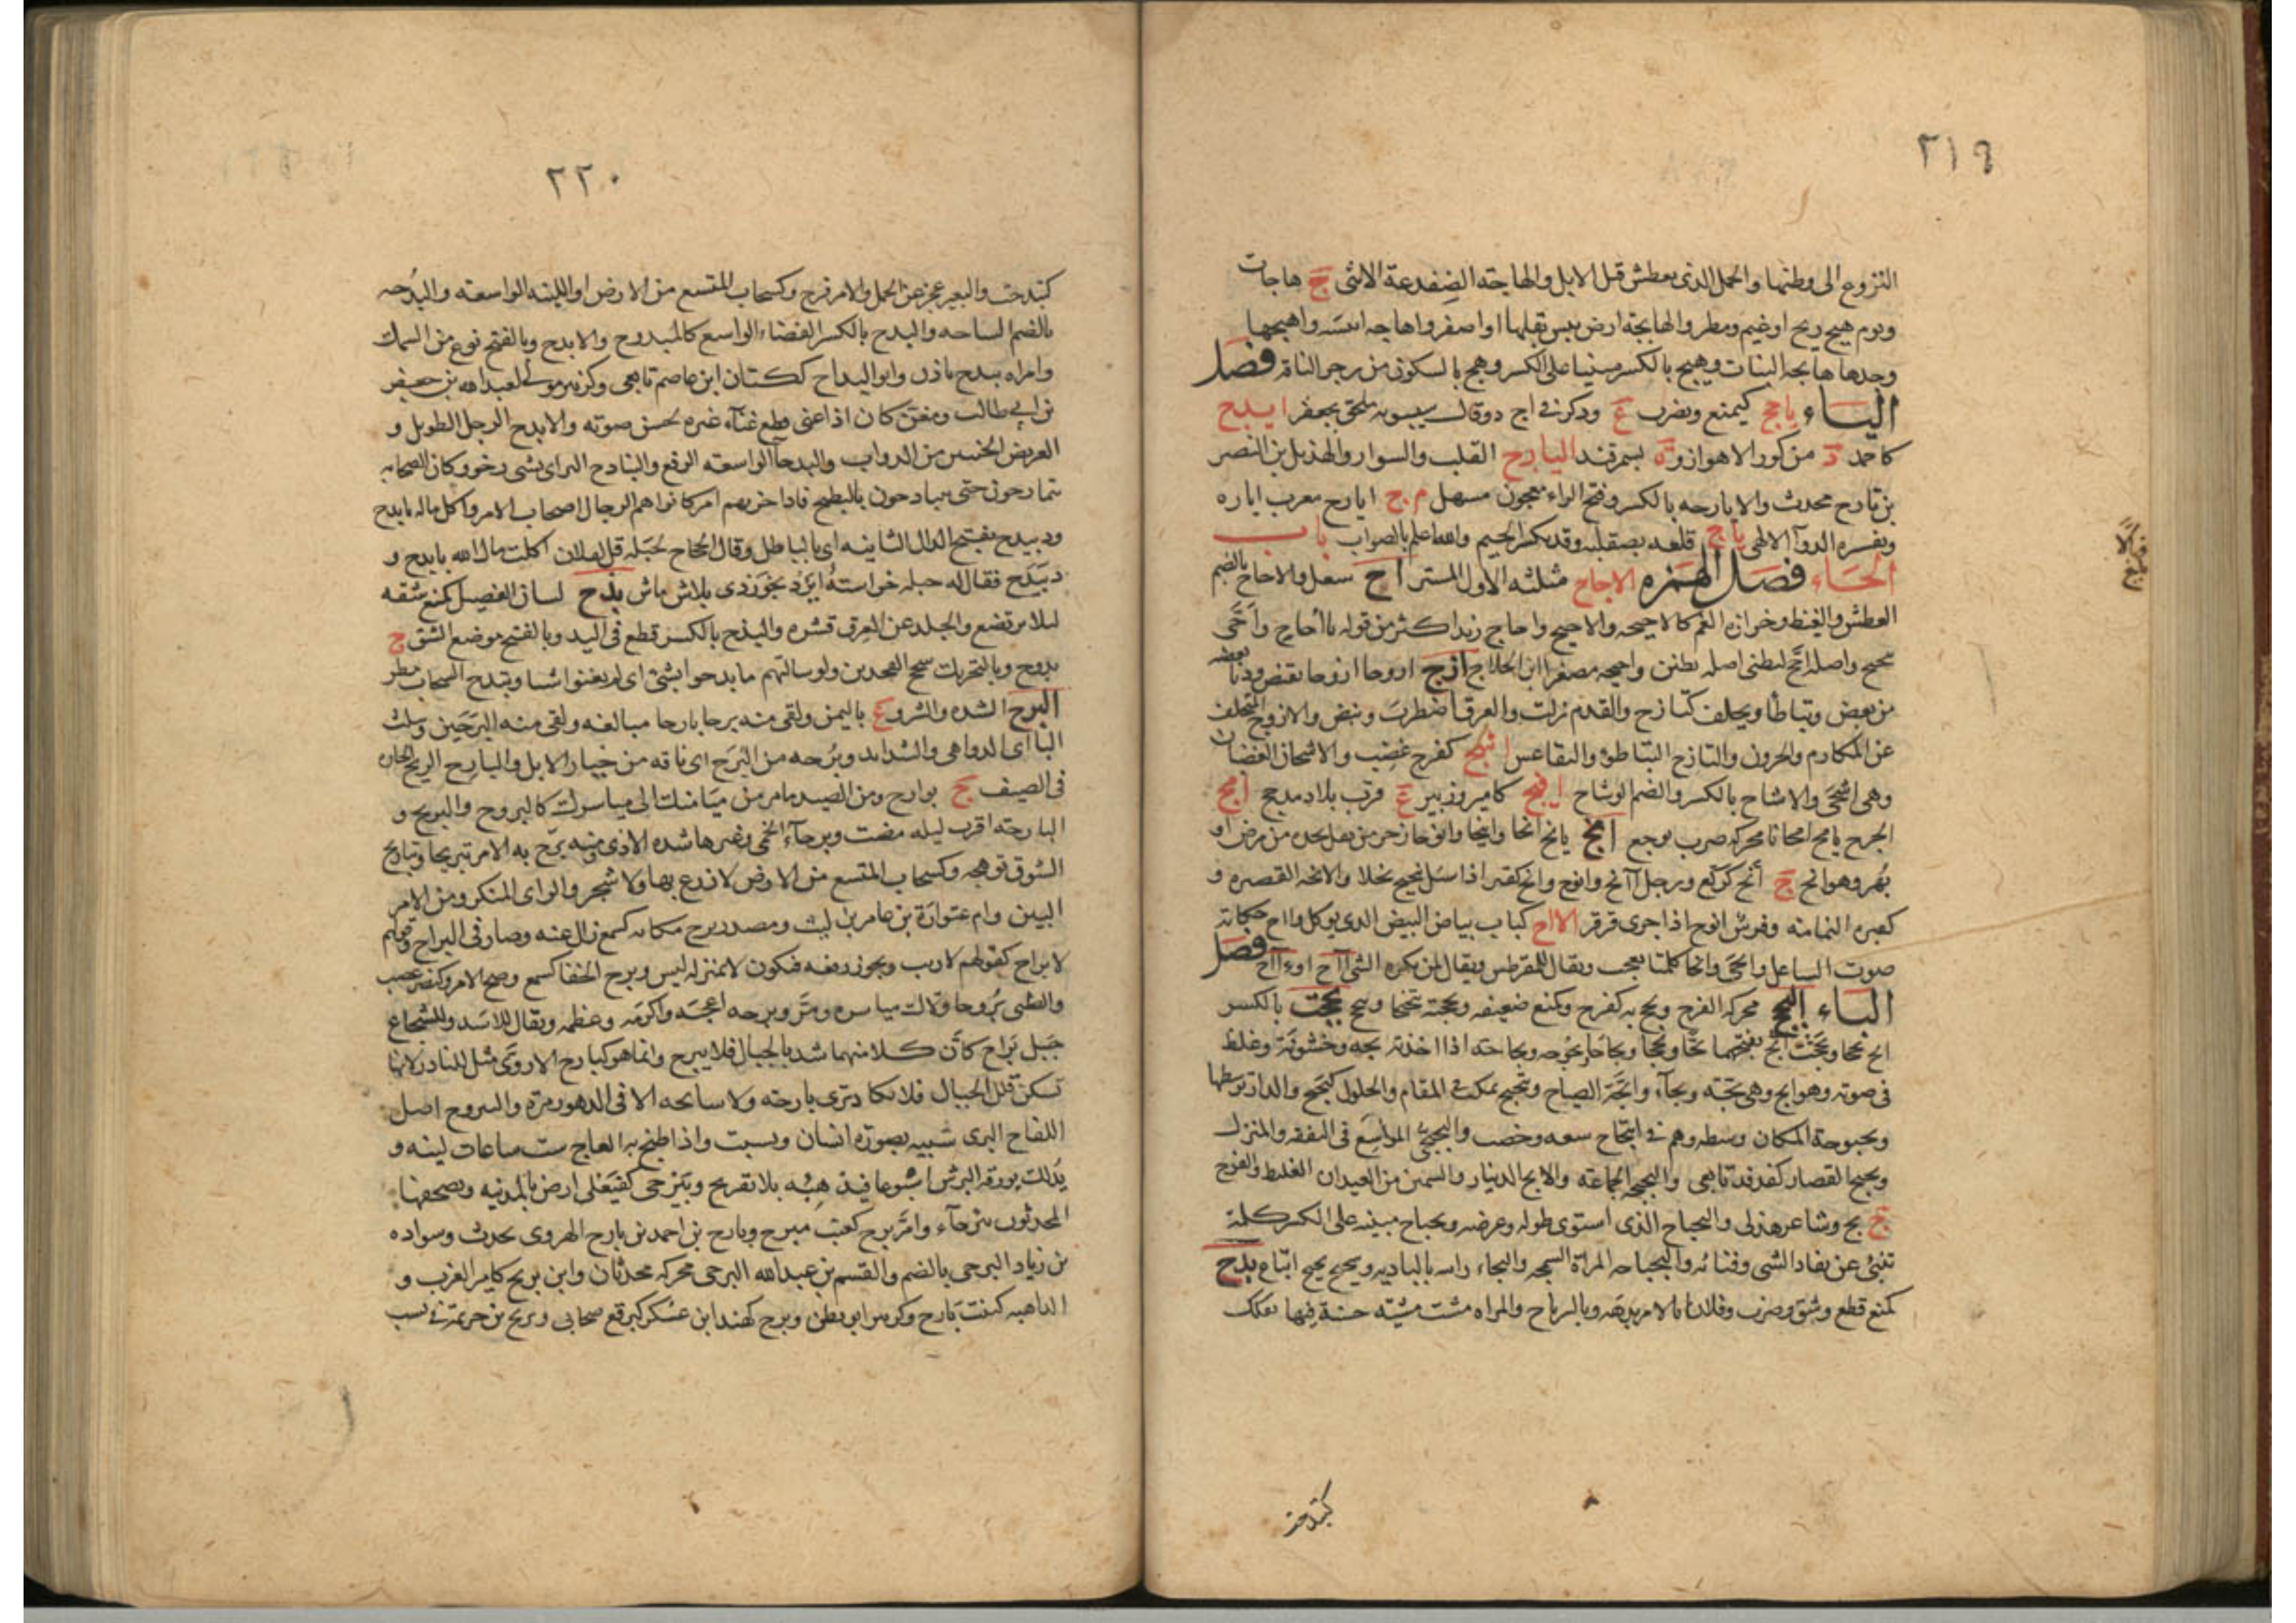 ٢١٩
النزوع الى وطنها والجمل الذى يعطش قبل الابل والهاجته الضفدعة الانثى ج هاجات
ويوم هيج ريح اوغيم ومطر والهايجة ارض يبس بقلها او اصفر واهاجه ايبسه واهيجها
وجدها هايجه النبات وهيج بالكسر مبنيا على الكسر وهج بالسكون من زجر الناقة فصل
الياء ياجج كيمنع ويضرب ع وذكر فى اج ج وقال سيبويه ملحق بجعفر ايذج
كاحمد د من كور الاهواز وة بسمرقند اليارج القلب والسوار والهذيل بن النضر
بن يارج محدث والايارجه بالكسر وفتح الراء معجون مسهل م ج ايارج معرب اياره
وتفسيره الدوآ الالهى ياج قلعه بصقليه وقد يكسر الجيم والله اعلم بالصواب باب
الحاء فصل الهمزه الاجاح مثلثه الاول الستر اح سعل والاحاح بالضم
العطش والغيظ وحزازه الغم كالاحيحه والاحيح واحاح زيد اكثر من قوله يا احاح وأحى
تنحنح واصله احح كتظنى اصله تظنن واحيحه مصغرا ابن الجلاح ازح ازوحا ازوحا تقبض ودنا بعضه
من بعض وتباطا وتخلف كتازح والقدم زلت والعرق اضطرب ونبض والازوح المتخلف
عن المكارم والحرون والتازح التباطوء والتقاعس اشح كفرح غضب والاشحان الغضبان
وهى اشحى والاشاح بالكسر والضم الوشاح افيح كامير وزبير ع قرب بلاد مذحج امح
الجرح يامح امحانا محركه ضرب بوجع انح يانح انحا وانيحا وانوحا زحر من ثقل يجده من مرض او
بهر وهو انح ج أنح كركع ورجل آنح وانوح وانح كقبر اذا سئل تنحنح بخلا والانحه القصيره و
كقبره النمامه وفرس انوح اذا جرى قرقر الااح كباب بياض البيض الذى يوكل واح حكايه
صوت الساعل وايحى وايحا كلمتا تعجب ويقال للمقرطس ويقال لمن يكره الشى آاح او آاح فصل
الباء البجح محركه الفرح وبجح به كفرح وكمنع ضعيفه وبجحته تبجحا وتبجح بححت بالكسر
ابح بححا وبححت ابح بفتحهما بحا وبححا وبحاحا وبحوحه وبحاحه اذا اخذته بحه وخشونة وغلظ
فى صوته وهو ابح وهى بحه وبحآء وابحه الصياح وتبحبح تمكن فى المقام والحلول كبحبح والدار توسطها
وبحبوحة المكان وسطه وهم فى ابتحاح سعه وخصب والبحبحى الواسع فى النفقه والمنزل
وبحبح القصار كفدفد تابعى والبحبحه الجماعه والابح الدينار والسمين من العيدان الغليظ والقدح
ج بح وشاعر هذلى والبحباح الذى استوى طوله وعرضه وبحباح مبنيه على الكسر كلمة
تنبئ عن نفاد الشى وفنائه والبحباحه المراة السمجه والبحاء رابيه بالباديه وبحبح اتباع بدح
كمنع قطع وشق وضرب وفلانا بالامر بدهه وبالرماح والمراه مشت مشيته حسنة فيها تفكك
كتبدحت
٢٢٠
كتبدحت والبعير عجز عن الحمل والامر فدح وكسحاب المتسع من الارض او اللينه الواسعته والبدحه
بالضم الساحه والبدح بالكسر الفضاء الواسع كالمبدوح والابدح وبالفتح نوع من السمك
وامراه بيدح بادن وابو البداح ككتان ابن عاصم تابعى وكزبير مولى لعبد الله بن جعفر
بن ابى طالب ومغن كان اذا غنى قطع غنآء غيره لحسن صوته والابدح الرجل الطويل و
العريض الجنبين من الدواب والبدحآ الواسعته الرفغ والتبادح الترامى بشى رخو وكان الصحابه
يتمازحون حتى يتبادحون بالبطيخ فاذا حزبهم امر كانوا هم الرجال اصحاب الامر واكل ماله بابدح
ودبيدح بفتح الدال الثانيه اى بالباطل وقال الحجاج لجبله قل لفلان اكلت مال الله بابدح و
دبيدح فقال له جبله خواسته ايزد بخوردى بلاش ماش بذح لسان الفصيل كمنع شقه
لئلا يرتضع والجلد عن العرق قشره والبذح بالكسر قطع فى اليد وبالفتح موضع الشق ج
بذوح وبالتحريك سحج الفخذين ولو سالتهم ما بذحوا بشئ اى لم يغنوا شيا وتبذح السحاب مطر
البرح الشده والشر وع باليمن ولقى منه برحا بارحا مبالغه ولقى منه البرحين وتثلث
البا اى الدواهى والشدايد وبرحه من البرح اى ناقه من خيار الابل والبارح الريح الحاره
فى الصيف ج بوارح ومن الصيد مامر من ميامنك الى مياسرك كالبروح والبريح و
البارحته اقرب ليله مضت وبرحآء الحمى وغيرها شده الاذى ومنه برح به الامر تبريحا وتباريح
الشوق توهجه وكسحاب المتسع من الارض لا زرع بها ولا شجر والراى المنكر ومن الامر
البين وام عتوارة بن عامر بن ليث ومصدر برح مكانه كسمع زال عنه وصار فى البراح وقولهم
لا براح كقولهم لا ريب ويجوز رفعه فتكون لا بمنزله ليس وبرح الخفا كسمع وضح الامر وكنصر غضب
والظبى بروحا ولاك مياسره ومر وابرحه اعجبه واكرمه وعظمه ويقال للاسد والشجاع
حبيل براح كأن كلا منهما شد بالحبال فلا يبرح وانما هو كبارح الاروى مثل للنادر لانها
تسكن قلل الجبال فلا تكاد ترى بارحته ولا سانحه الا فى الدهور مرة واليبروح اصل
اللفاح البرى شبيه بصورة انسان ويسبت واذا طبخ به العاج ست ساعات لينه و
يدلك بورقه البرش اسبوعا فيذهبه بلا تقريح وبيرحى كفيعلى ارض بالمدنيه ويصحفها
المحدثون بئرحآء وامر برح كعنب مبرح وبارح بن احمد بن بارح الهروى محدث وسواده
بن زياد البرحى بالضم والقسم بن عبد الله البرحى محركه محدثان وابن بريح كامير الغراب و
الداهيه كبنت بارح وكزبير ابو بطن وبرح كهند ابن عسكر كبرقع صحابى وبريح بن خزيمة فى نسب